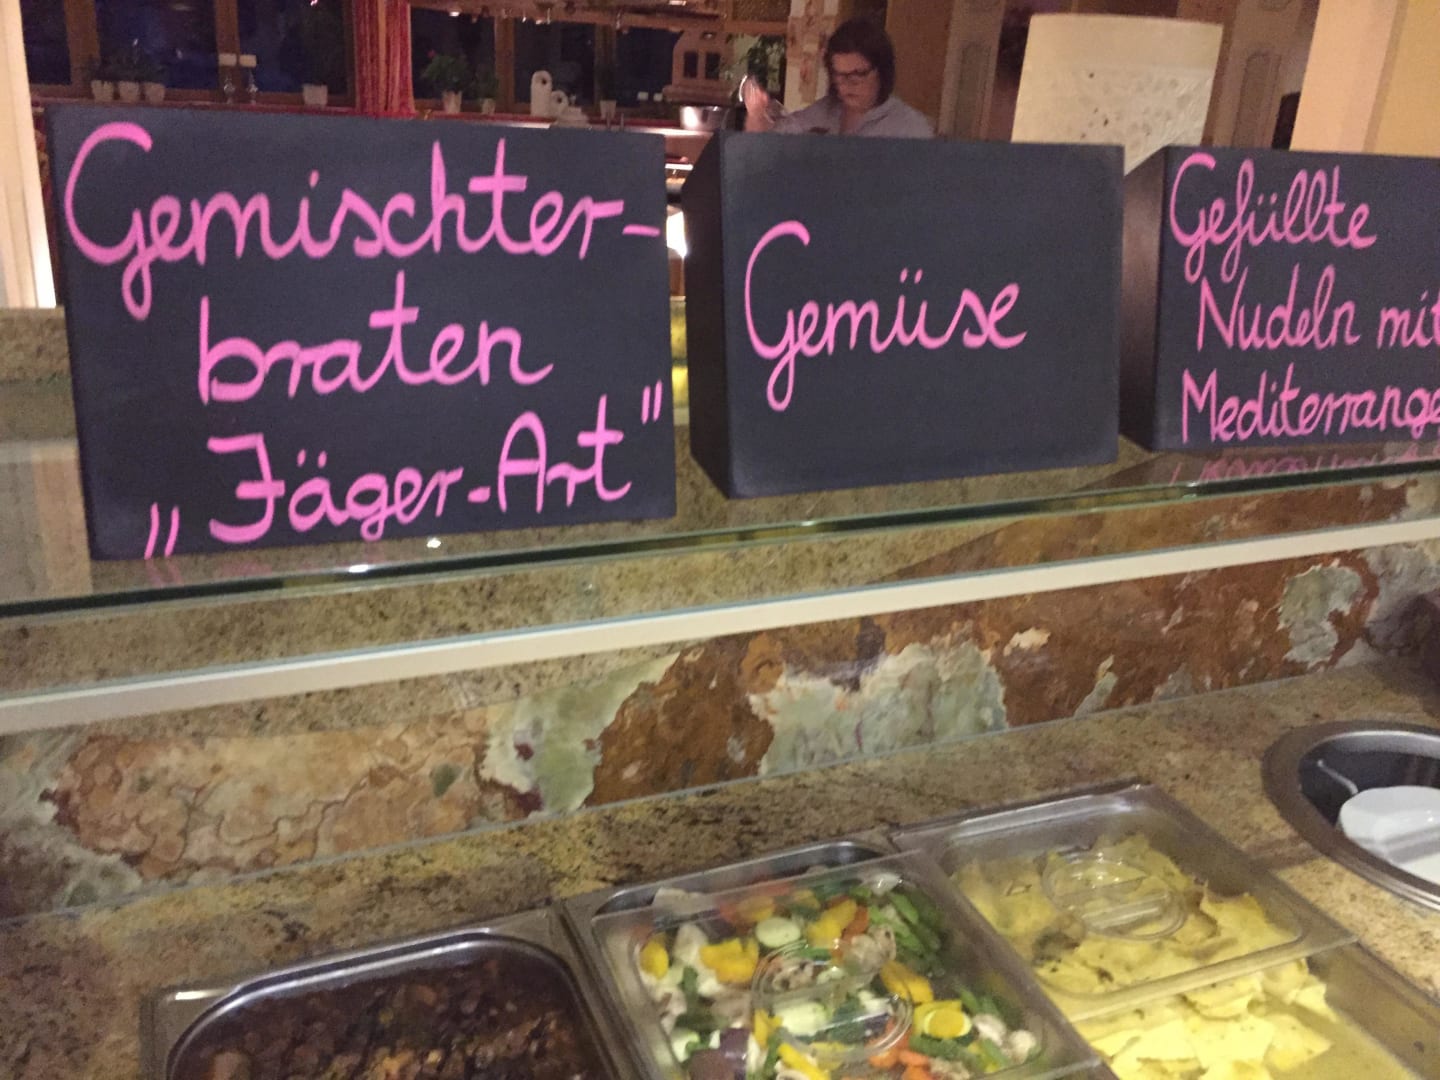 Gemischter-
braten
„Jäger-Art"
Gemüse
Gefüllte
Nudeln mit
Mediterrange